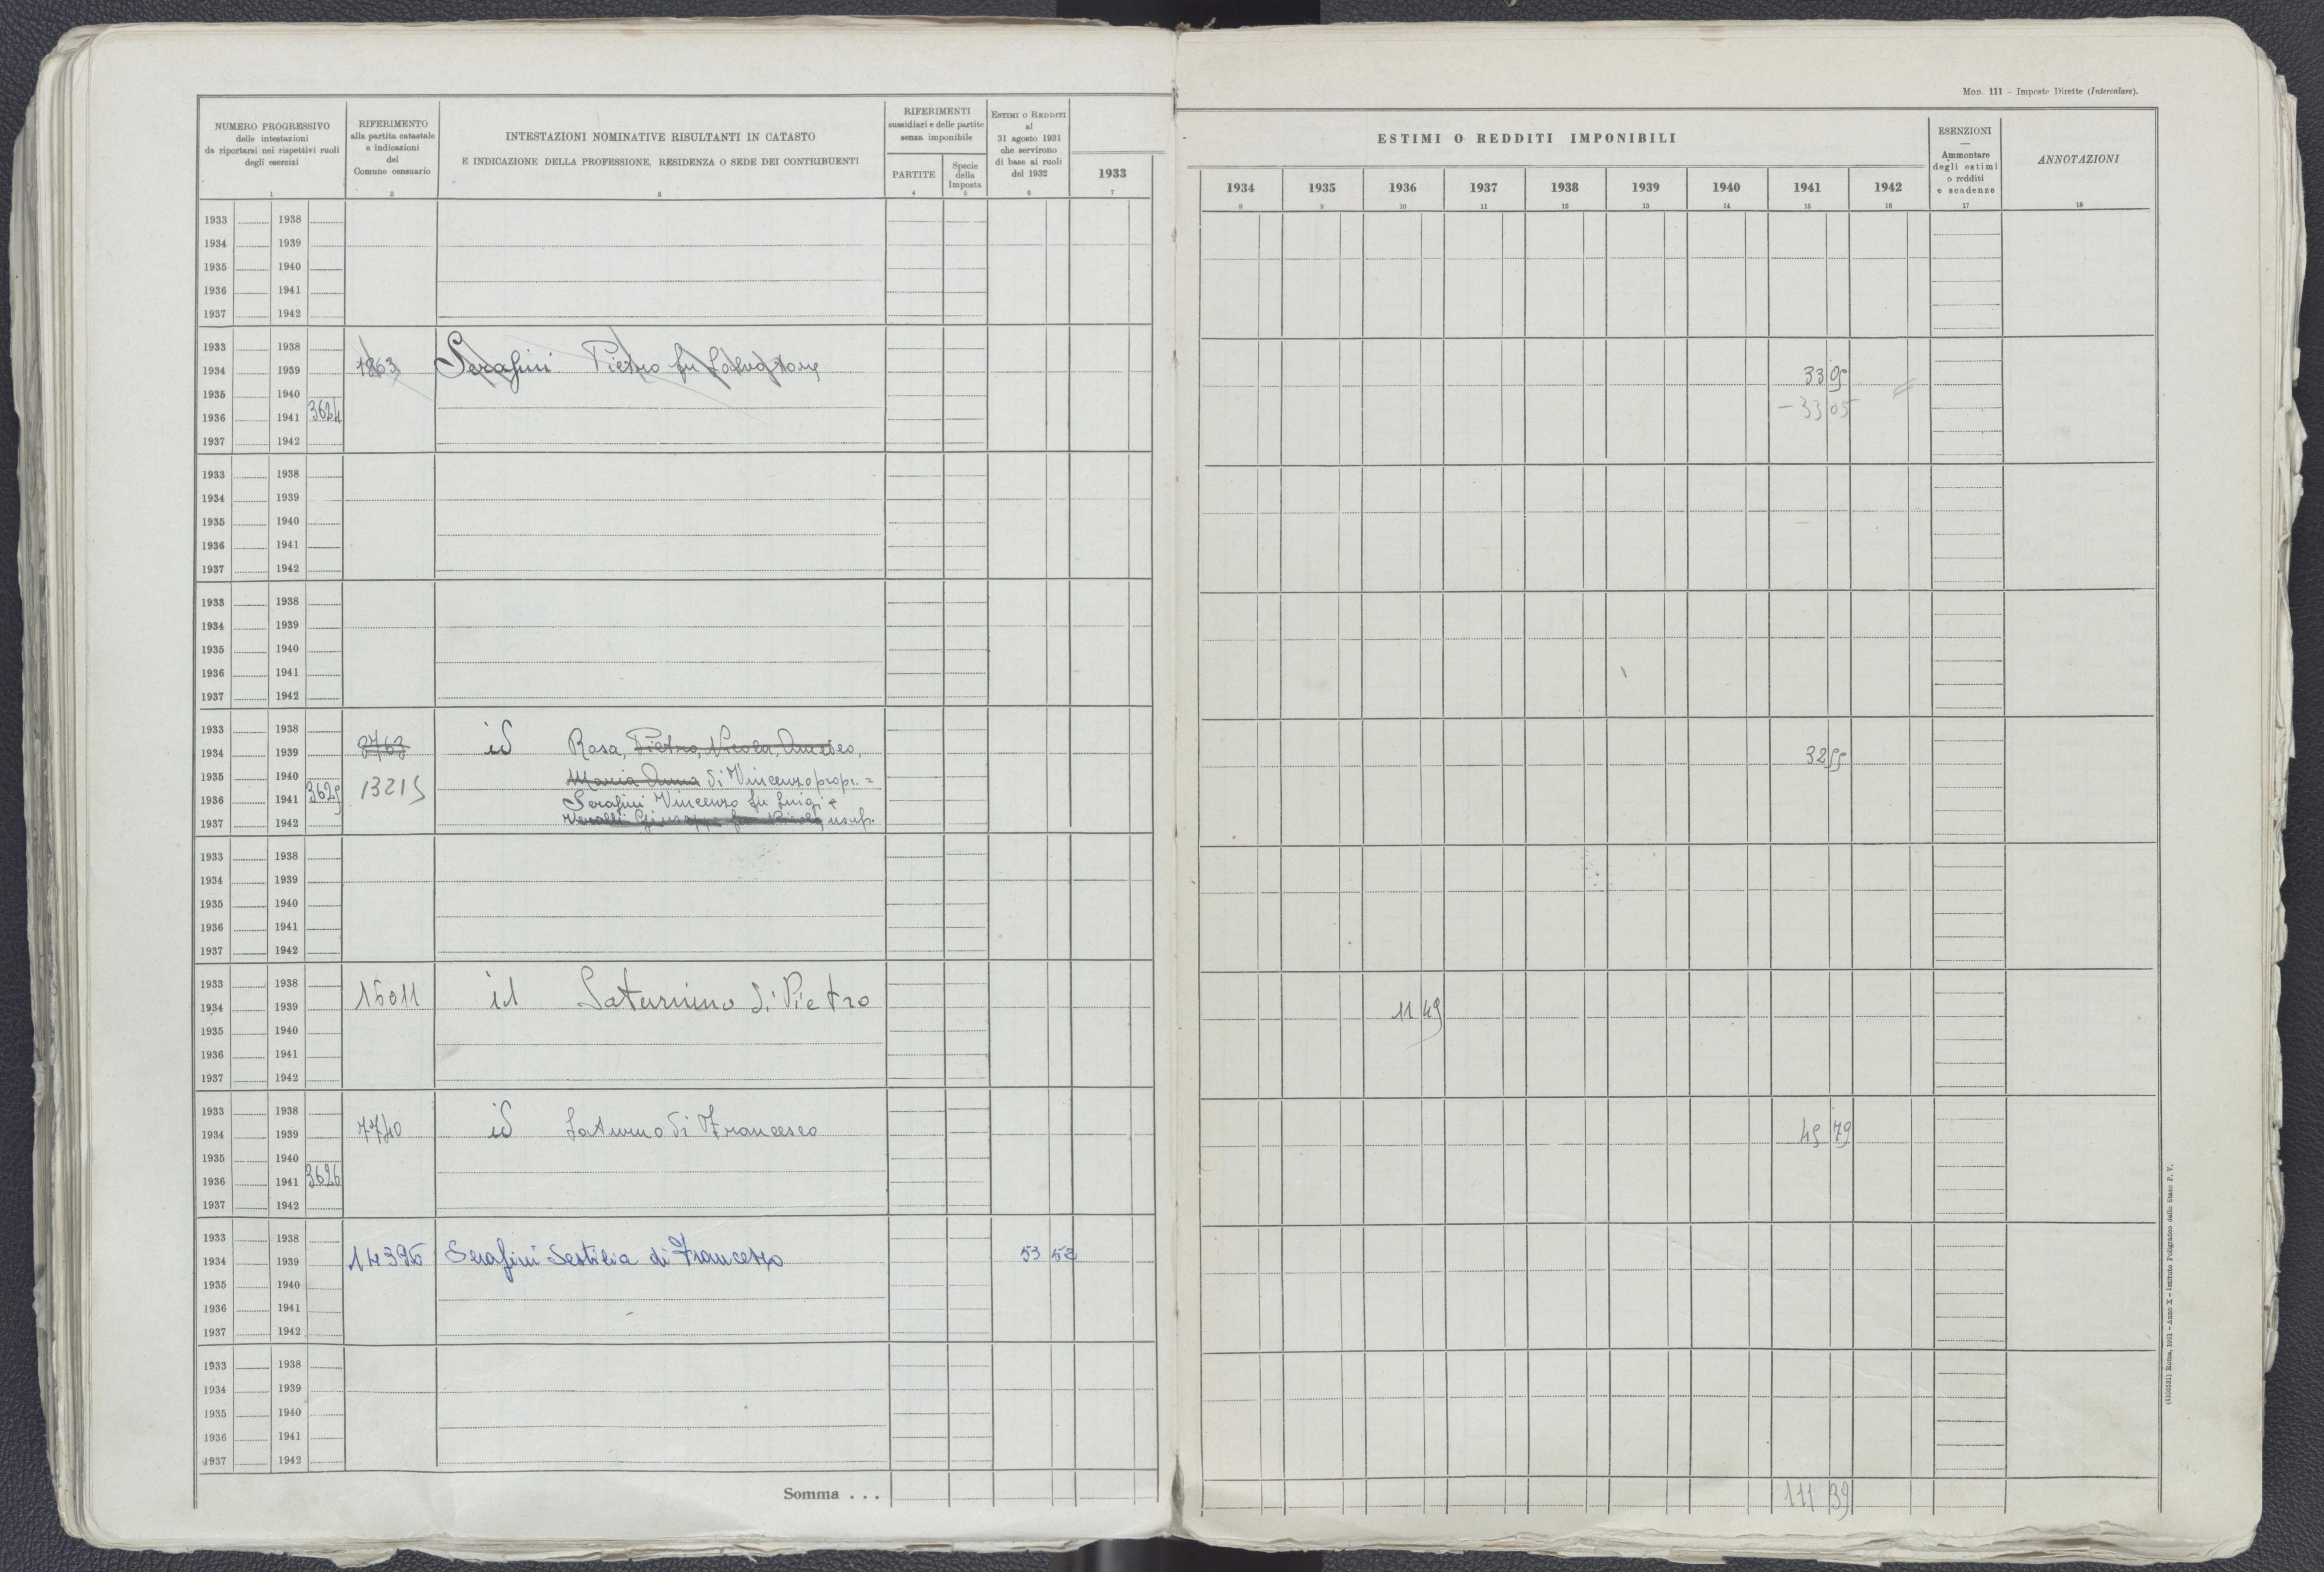 Mod. 111 - Imposte Dirette (Intercalare).
NUMERO PROGRESSIVO
delle intestazioni
da riportarsi nei rispettivi ruoli
degli esercizi
1
RIFERIMENTO
alla partita catastale
e indicazioni
del
Comune censuario
2
INTESTAZIONI NOMINATIVE RISULTANTI IN CATASTO
E INDICAZIONE DELLA PROFESSIONE, RESIDENZA O SEDE DEI CONTRIBUENTI
3
RIFERIMENTI
sussidiari e delle partite
senza imponibile
PARTITE
4
Specie
della
Imposta
5
ESTIMI O REDDITI
al
31 agosto 1931
che servirono
di base ai ruoli
del 1932
6
1933
7
ESTIMI O REDDITI IMPONIBILI
1934 1935 1936 1937 1938 1939 1940 1941 1942
8 9 10 11 12 13 14 15 16
ESENZIONI
—
Ammontare
degli estimi
o redditi
e scadenze
17
ANNOTAZIONI
18
1933 1938
1934 1939
1935 1940
1936 1941
1937 1942
1933 1938
1934 1939 1863 Serafini Pietro fu Salvatore 33 05
1935 1940
1936 1941 3624 -33 05
1937 1942
1933 1938
1934 1939
1935 1940
1936 1941
1937 1942
1933 1938
1934 1939
1935 1940
1936 1941
1937 1942
1933 1938
1934 1939 8763 id Rosa, Pietro, Nicola, Amedeo, 32 55
1935 1940 Maria Anna di Vincenzo propr. =
1936 1941 3625 13215 Serafini Vincenzo fu Luigi e
1937 1942 usuf.
1933 1938
1934 1939
1935 1940
1936 1941
1937 1942
1933 1938
1934 1939 15011 id Saturnino di Pietro 11 49
1935 1940
1936 1941
1937 1942
1933 1938
1934 1939 7740 id Saturno di Francesco 45 79
1935 1940
1936 1941 3626
1937 1942
1933 1938
1934 1939 14396 Serafini Sestilia di Francesco 53 52
1935 1940
1936 1941
1937 1942
1933 1938
1934 1939
1935 1940
1936 1941
1937 1942
Somma . . . 111 39
(4100581) Roma, 1931 - Anno X - Istituto Poligrafico dello Stato P. V.